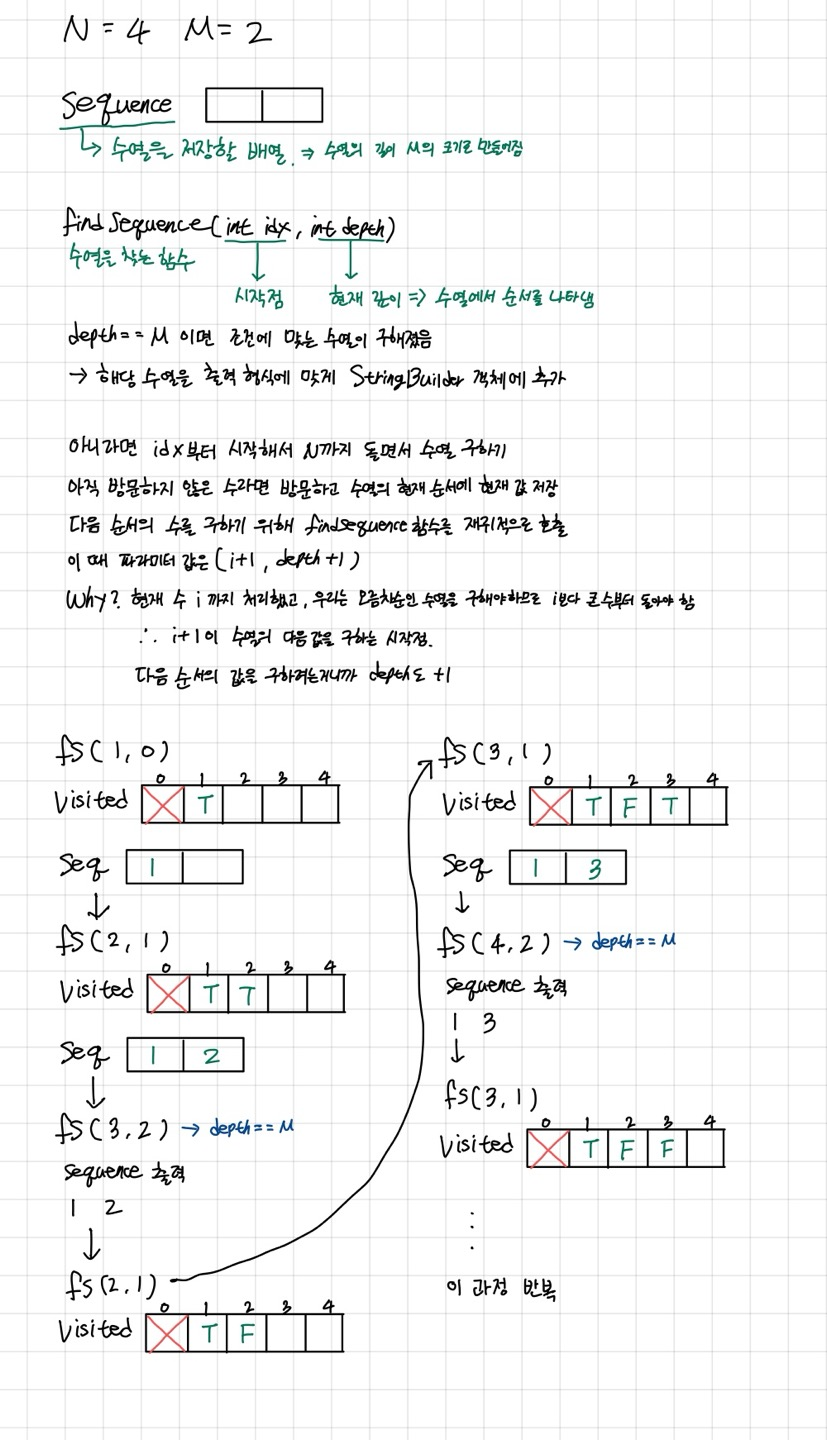 N = 4 M = 2
Sequence
↳ 수열을 저장할 배열. ⇒ 수열의 길이 M의 크기로 만들어짐
find Sequence(int idx, int depth)
수열을 찾는 함수
시작점 현재 깊이 => 수열에서 순서를 나타냄
depth == M 이면 조건에 맞는 수열이 구해졌음
→ 해당 수열을 출력 형식에 맞게 StringBuilder 객체에 추가
아니라면 idx부터 시작해서 N까지 돌면서 수열 구하기
아직 방문하지 않은 수라면 방문하고 수열의 현재 순서에 현재 값 저장
다음 순서의 수를 구하기 위해 findsequence 함수를 재귀적으로 호출
이 때 파라미터 값은 (i+1, depth+1)
Why? 현재 수 i 까지 처리했고, 우리는 오름차순인 수열을 구해야하므로 i보다 큰 수부터 돌아야 함
∴ i+1이 수열의 다음 값을 구하는 시작점.
다음 순서의 값을 구하려는거니까 depth도 +1
fS(1, 0)
0 1 2 3 4
Visited X T
Seq 1
↓
fS(2, 1)
0 1 2 3 4
Visited X T T
Seq 1 2
↓
fS(3, 2) → depth == M
Sequence 출력
1 2
↓
fs(2, 1)
0 1 2 3 4
Visited X T F
fS(3, 1)
0 1 2 3 4
Visited X T F T
Seq 1 3
↓
fS(4, 2) → depth == M
Sequence 출력
1 3
↓
fs(3, 1)
0 1 2 3 4
Visited X T F F
⋮
이 과정 반복